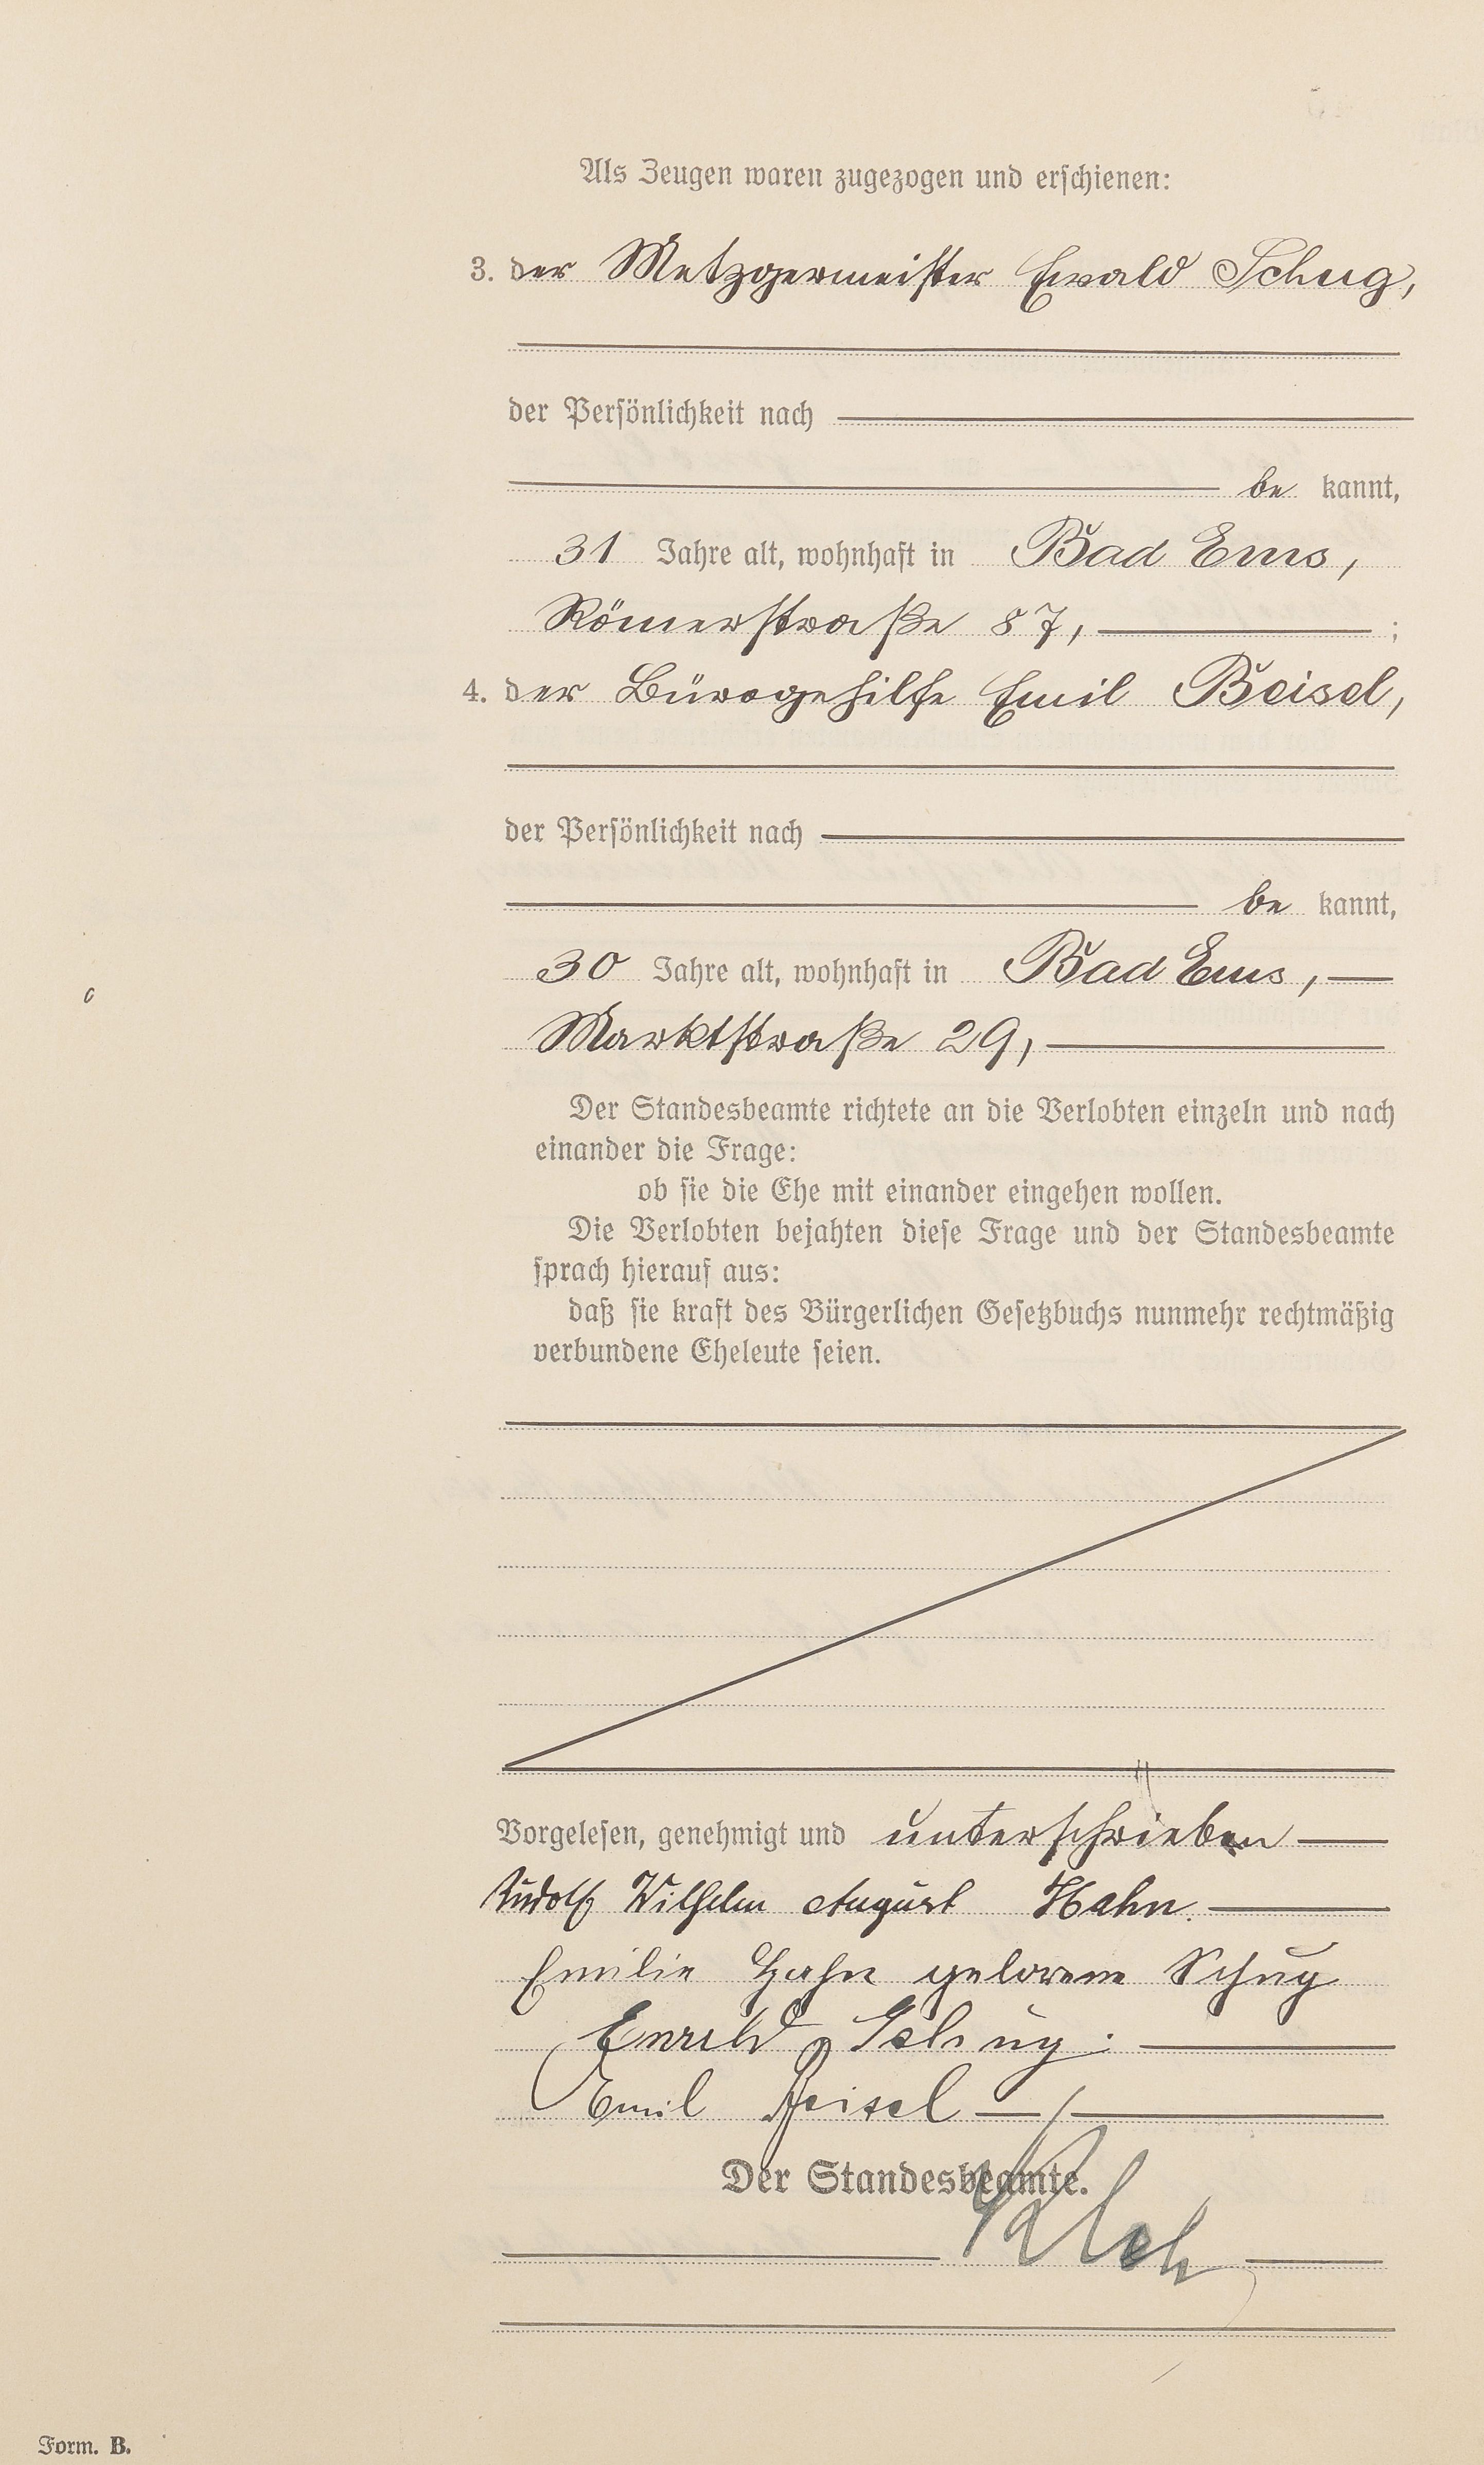 Als Zeugen waren zugezogen und erschienen:
3. der Metzgermeister Ewald Schug,
der Persönlichkeit nach
be kannt,
31 Jahre alt, wohnhaft in Bad Ems,
Römerstraße 87, ;
4. der Bürogehilfe Emil Beisel,
der Persönlichkeit nach
be kannt,
30 Jahre alt, wohnhaft in Bad Ems,
Marktstraße 29,
Der Standesbeamte richtete an die Verlobten einzeln und nach
einander die Frage:
ob sie die Ehe mit einander eingehen wollen.
Die Verlobten bejahten diese Frage und der Standesbeamte
sprach hierauf aus:
daß sie kraft des Bürgerlichen Gesetzbuchs nunmehr rechtmäßig
verbundene Eheleute seien.
Vorgelesen, genehmigt und unterschrieben
Rudolf Wilhelm August Hahn.
Emilie Hahn geborene Schug
Ewald Schug.
Emil Beisel
Der Standesbeamte.
Form. B.